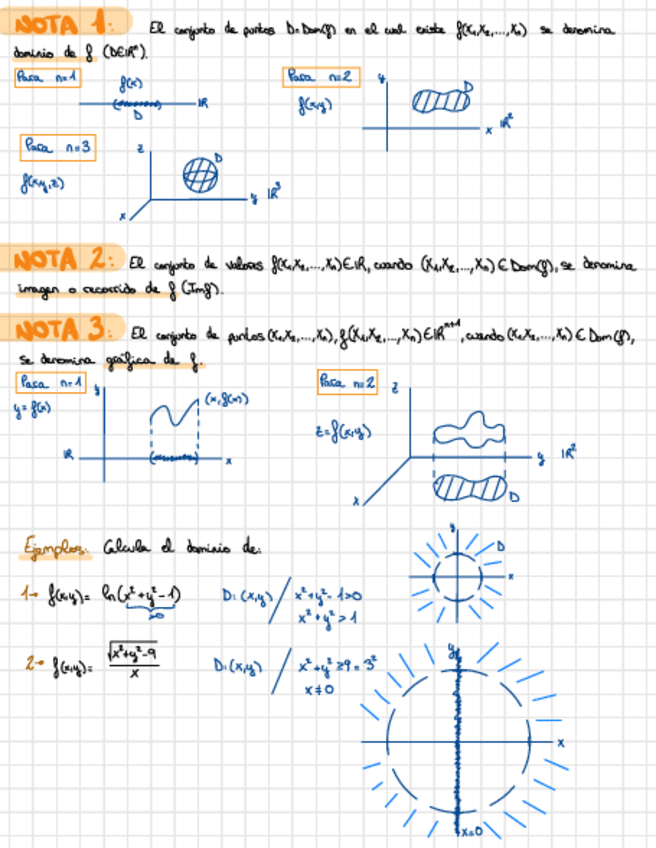 NOTA 1: El conjunto de puntos D=Dom(f) en el cual existe f(x₁,x₂,...,xₙ) se denomina
dominio de f (D∈ℝⁿ).
Para n=1
f(x)
D
ℝ
Para n=2
f(x,y)
y
D
x
ℝ²
Para n=3
f(x,y,z)
z
D
y
ℝ³
x
NOTA 2: El conjunto de valores f(x₁,x₂,...,xₙ)∈ℝ, cuando (x₁,x₂,...,xₙ)∈Dom(f), se denomina
imagen o recorrido de f (Imf).
NOTA 3: El conjunto de puntos (x₁,x₂,...,xₙ), f(x₁,x₂,...,xₙ)∈ℝⁿ⁺¹, cuando (x₁,x₂,...,xₙ)∈Dom(f),
se denomina gráfica de f.
Para n=1
y=f(x)
y
(x,f(x))
ℝ
x
Para n=2
z=f(x,y)
z
y
ℝ²
x
D
Ejemplos: Calcula el dominio de:
1→ f(x,y)= ln(x²+y²-1)
>0
D: (x,y) / x²+y²-1>0
x²+y²>1
y
D
x
2→ f(x,y)= √(x²+y²-9) / x
D: (x,y) / x²+y²≥9=3²
x≠0
y
x
x=0